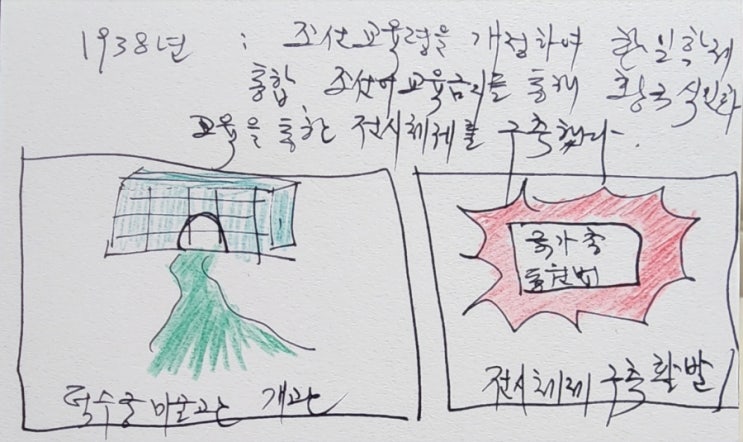 1938년 : 조선교육령을 개정하여 한일학제
통합 조선어교육금지를 통해 황국식민화
교육을 통한 전시체제를 구축했다.
국가총
동원법
덕수궁미술관 개관
전시체제 구축 활발